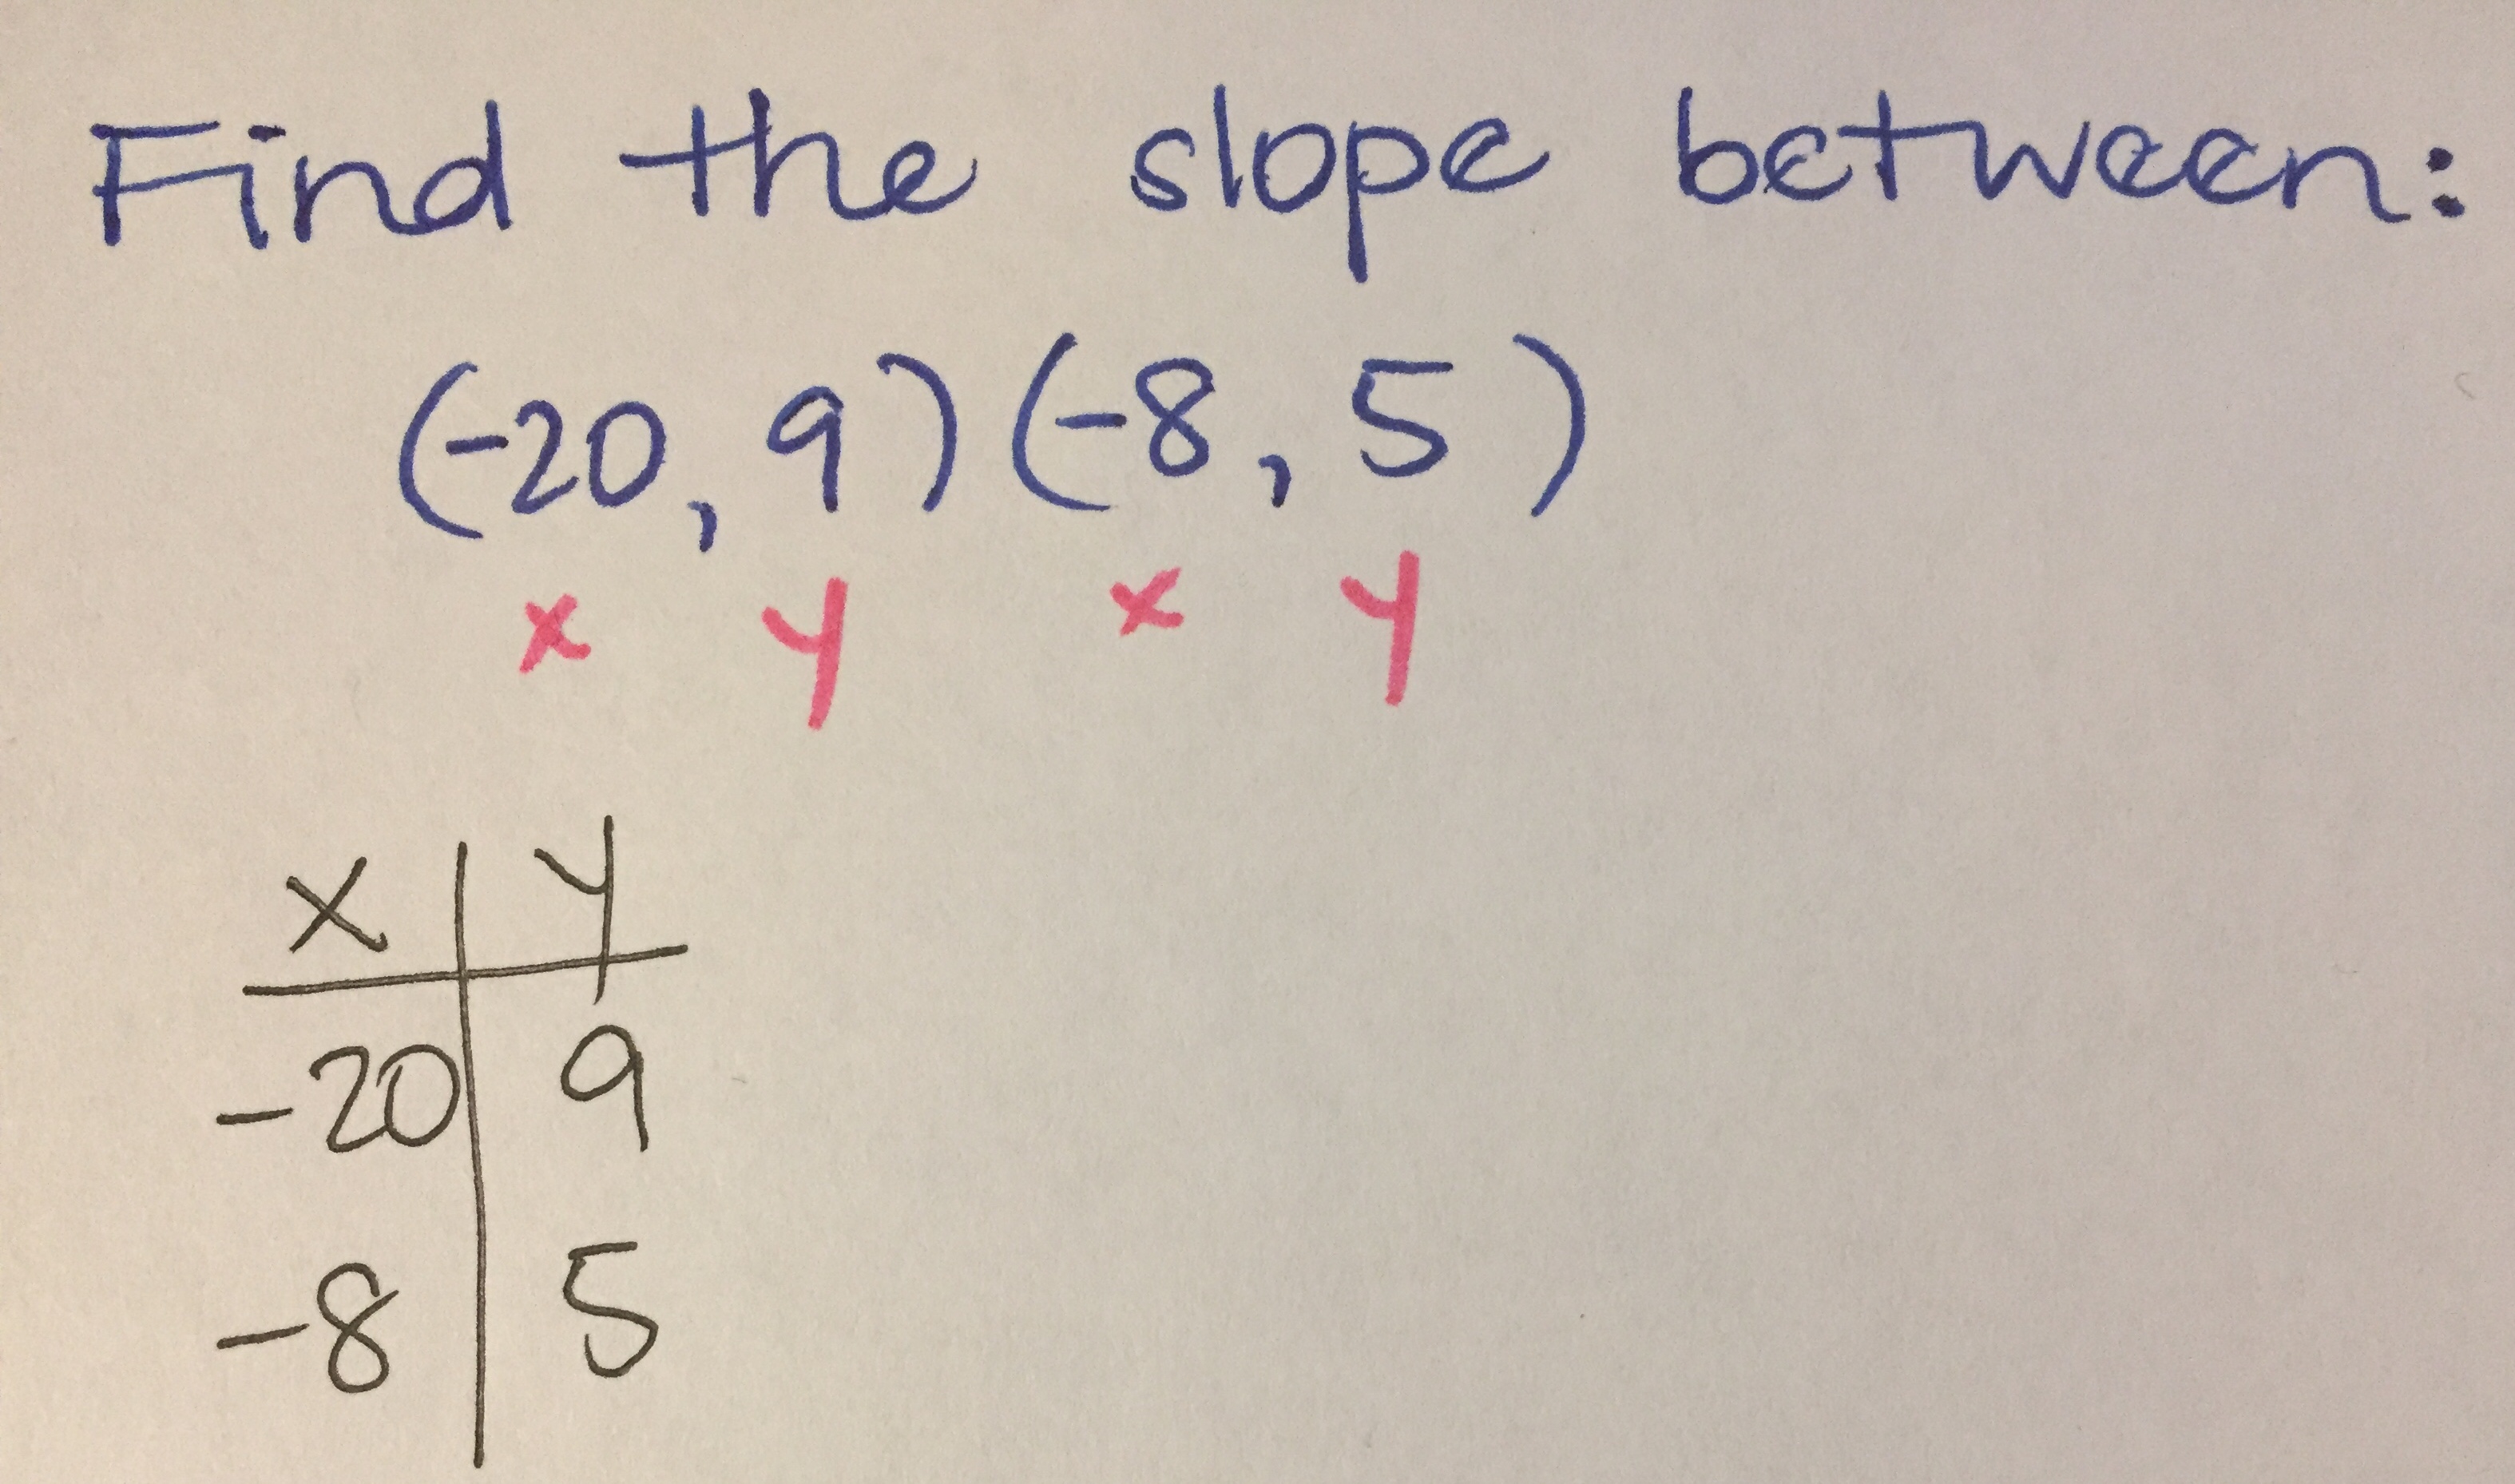 Find the slope between:
(-20, 9) (-8, 5)
x y x y
x y
-20 9
-8 5